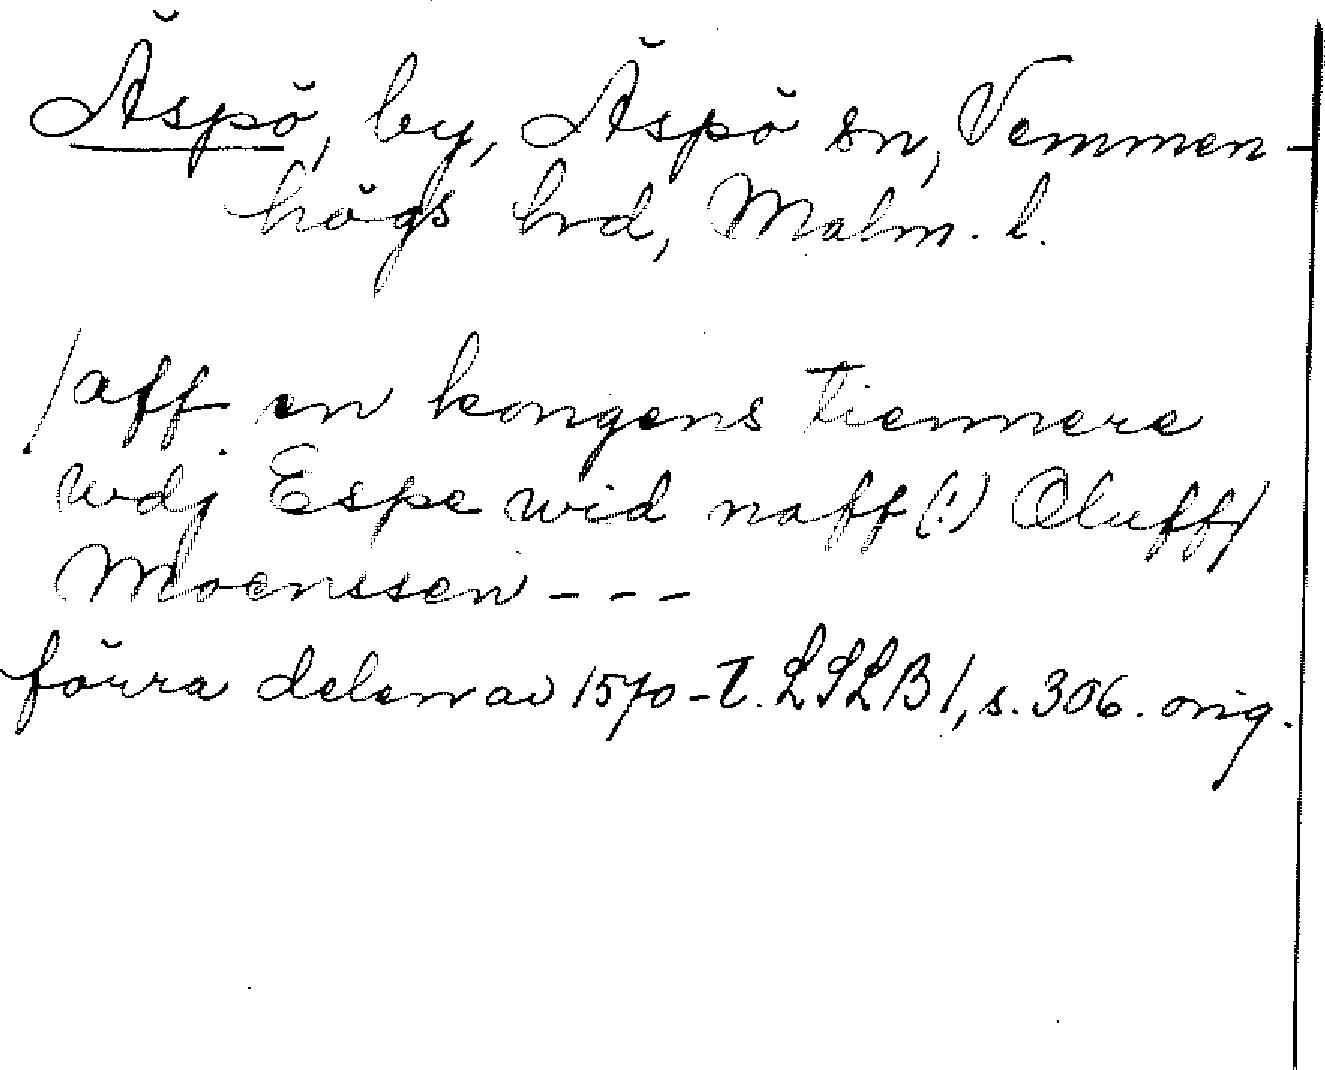 Äspö, by, Äspö sn, Vemmen-
högs hrd, Malm. l.
/aff en kongens tiennere
wdj Espe wid naff (!) Oluff/
Moenssen - - -
förra delen av 1570-t. LSLB 1, s. 306. orig.